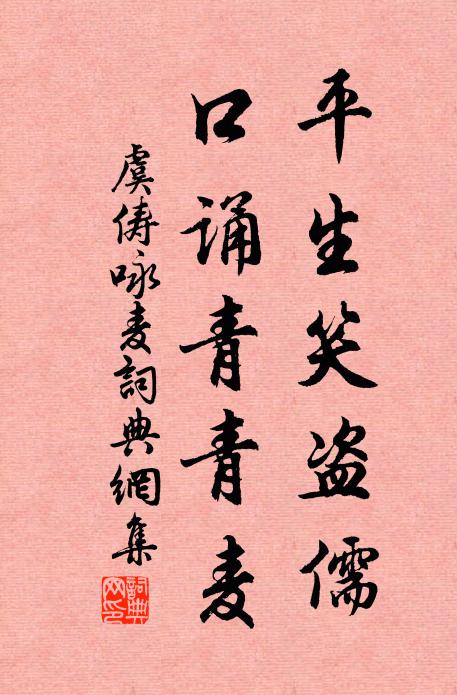 平生笑盗儒
口诵青青麦
虞俦咏麦詞典網集
詞典網印